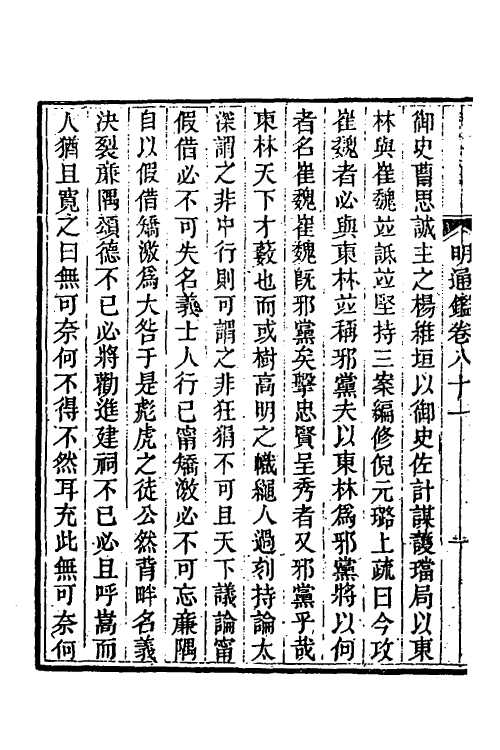 明通鑑卷八十一
一
御史曹思誠主之楊維垣以御史佐計謀護璫局以東
林與崔魏竝詆竝堅持三案編修倪元璐上疏曰今攻
崔魏者必與東林竝稱邪黨夫以東林爲邪黨將以何
者名崔魏崔魏旣邪黨矣擊忠賢呈秀者又邪黨乎哉
東林天下才藪也而或樹高明之幟繩人過刻持論太
深謂之非中行則可謂之非狂狷不可且天下議論甯
假借必不可失名義士人行已甯矯激必不可忘廉隅
自以假借矯激爲大咎于是彪虎之徒公然背畔名義
決裂廉隅頌德不已必將勸進建祠不已必且呼嵩而
人猶且寬之曰無可奈何不得不然耳充此無可奈何